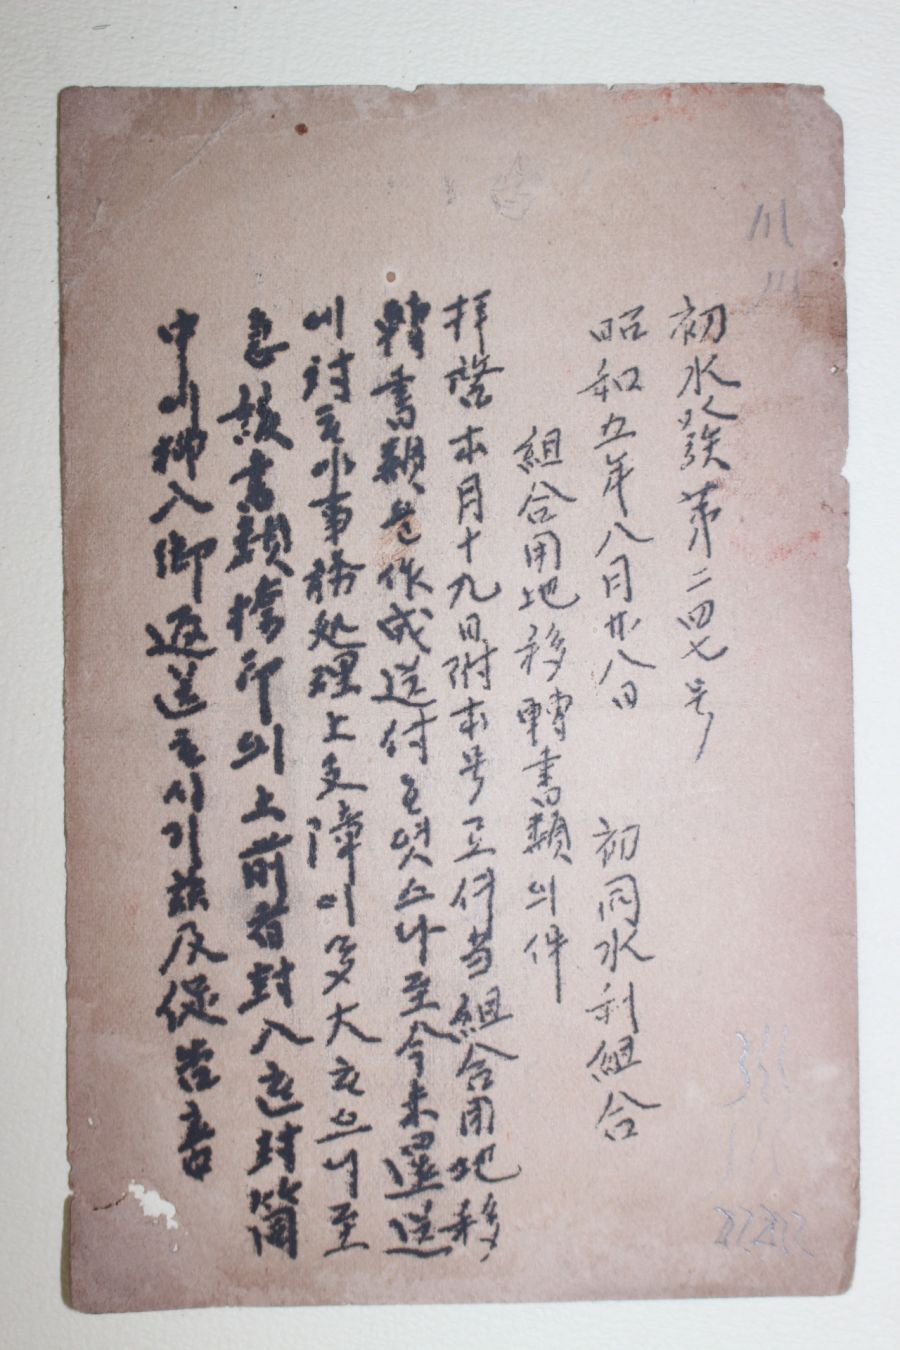 初水發第二四七号
昭和五年八月廿八日 初同水利組合
組合用地移轉書類의件
拜啓本月十九日附本号로何芳組合用地移
轉書類을作成送付하엿스나至今未還送
에対하야事務処理上支障이多大하오니至
急該書類捺印의上前者封入한封筒
中에挿入御返送하시기玆及促告喜